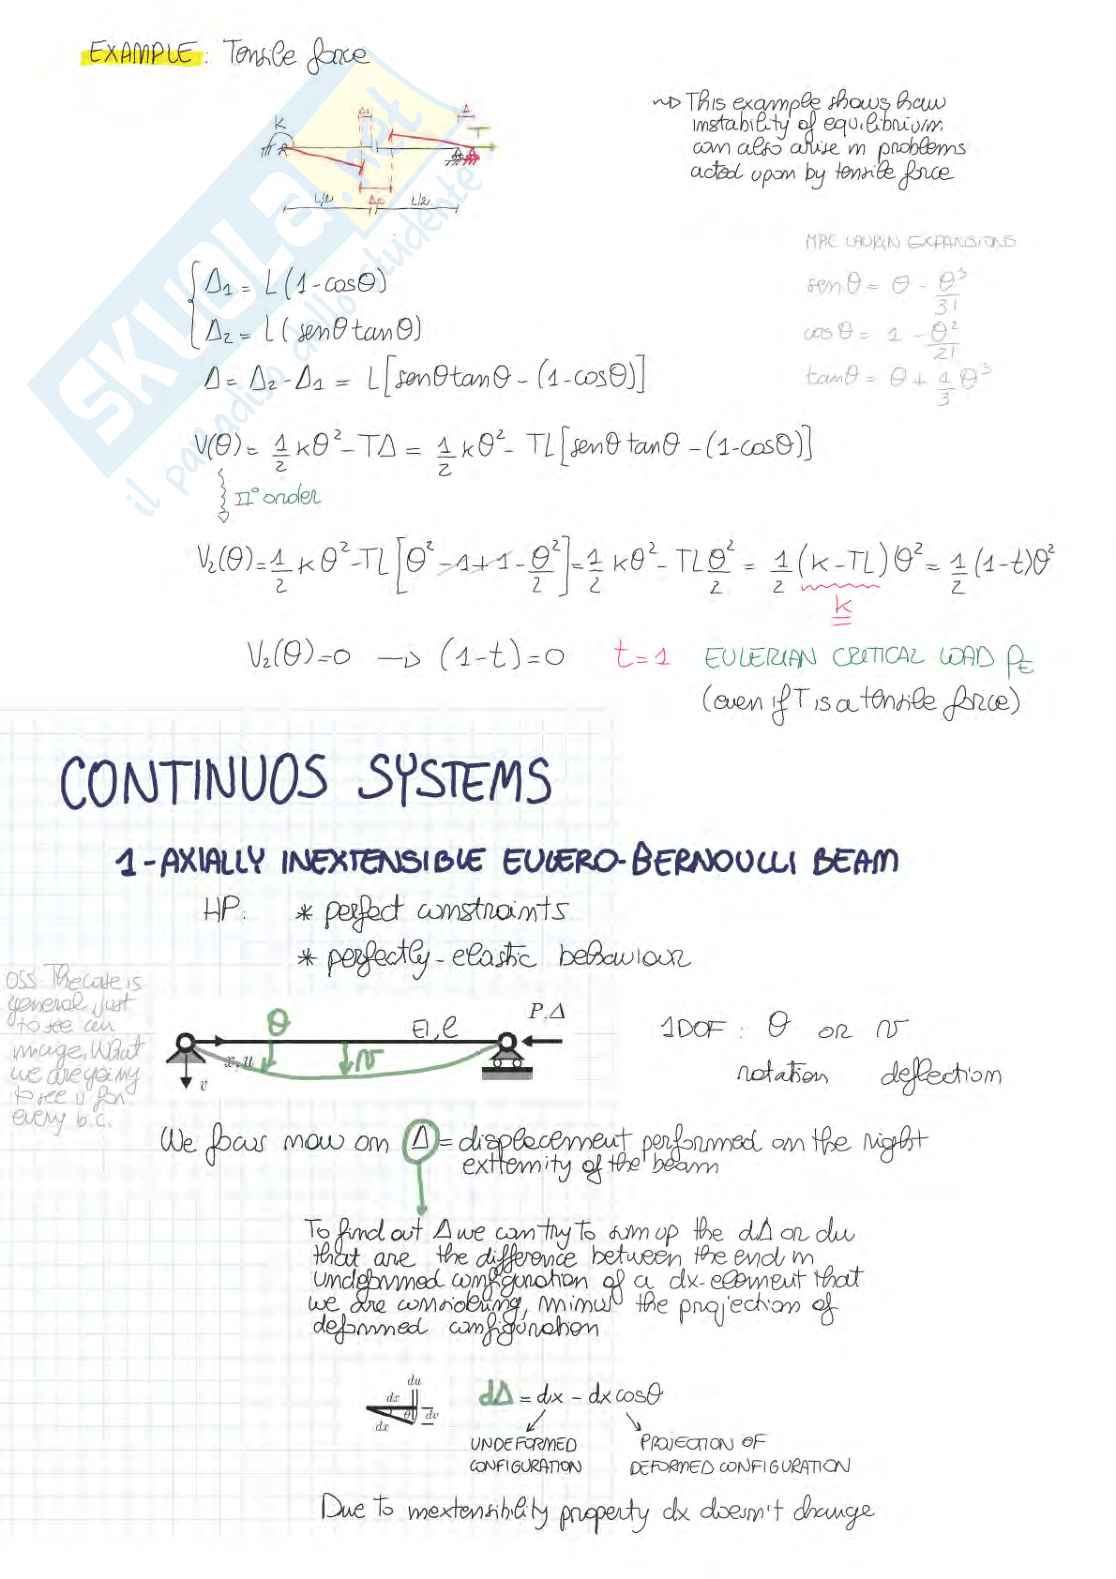 EXAMPLE: Tensile force
K
Δ1
Δ
T
L/2
Δ2
L/2
~> This example shows how
instability of equilibrium
can also arise in problems
acted upon by tensile force
SKUOLA.net
il paradiso dello studente
MAC LAURIN EXPANSIONS
senθ = θ - θ³/3!
cosθ = 1 - θ²/2!
tanθ = θ + 1/3 θ³
{ Δ₁ = L(1-cosθ)
Δ₂ = L(senθtanθ)
Δ = Δ₂-Δ₁ = L[senθtanθ - (1-cosθ)]
V(θ) = 1/2 kθ² - TΔ = 1/2 kθ² - TL[senθtanθ - (1-cosθ)]
II° order
V₂(θ) = 1/2 kθ² - TL[θ² - 1 + 1 - θ²/2] = 1/2 kθ² - TL θ²/2 = 1/2 (k - TL)θ² = 1/2 (1-t)θ²
k
V₂(θ)=0 → (1-t)=0 t=1 EULERIAN CRITICAL LOAD PE
(even if T is a tensile force)
CONTINUOS SYSTEMS
1-AXIALLY INEXTENSIBLE EULERO-BERNOULLI BEAM
HP: * perfect constraints
* perfectly-elastic behaviour
OSS: The case is
general, just
to see an
image. What
we are going
to see is for
every b.c.
θ
EI, l
P,Δ
x, u
v
v
1DOF: θ or v
rotation deflection
We focus now on Δ = displacement performed on the right
extremity of the beam
To find out Δ we can try to sum up the dΔ or du
that are the difference between the end in
undeformed configuration of a dx-element that
we are considering, minus the projection of
deformed configuration
du
dx
θ
dv
dx
dΔ = dx - dxcosθ
UNDEFORMED
CONFIGURATION
PROJECTION OF
DEFORMED CONFIGURATION
Due to inextensibility property dx doesn't change